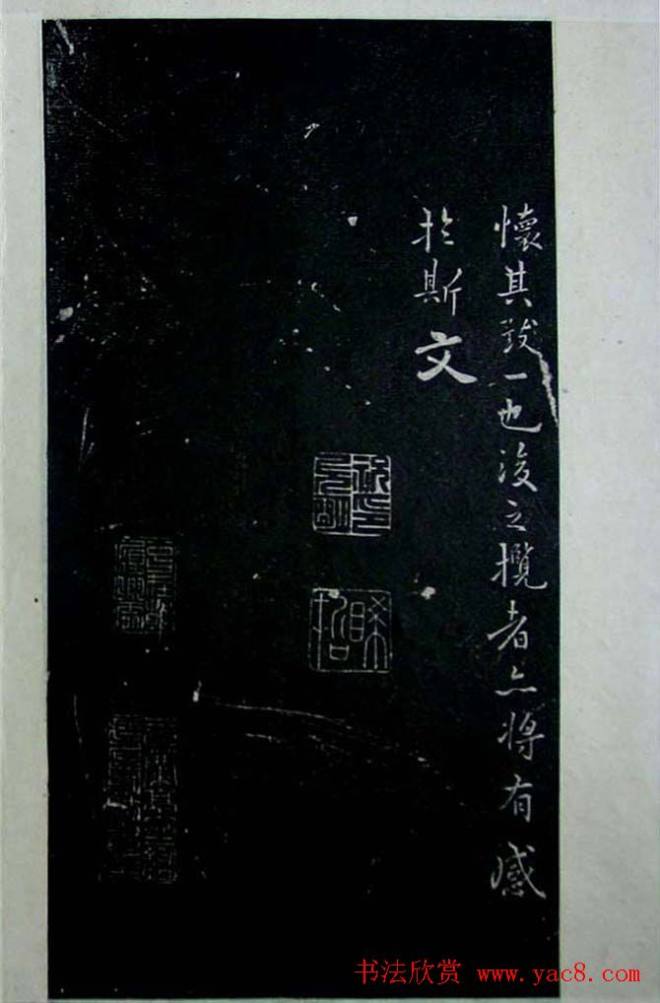 懷其致一也後之攬者亦將有感
於斯文
书法欣赏 www.yac8.com